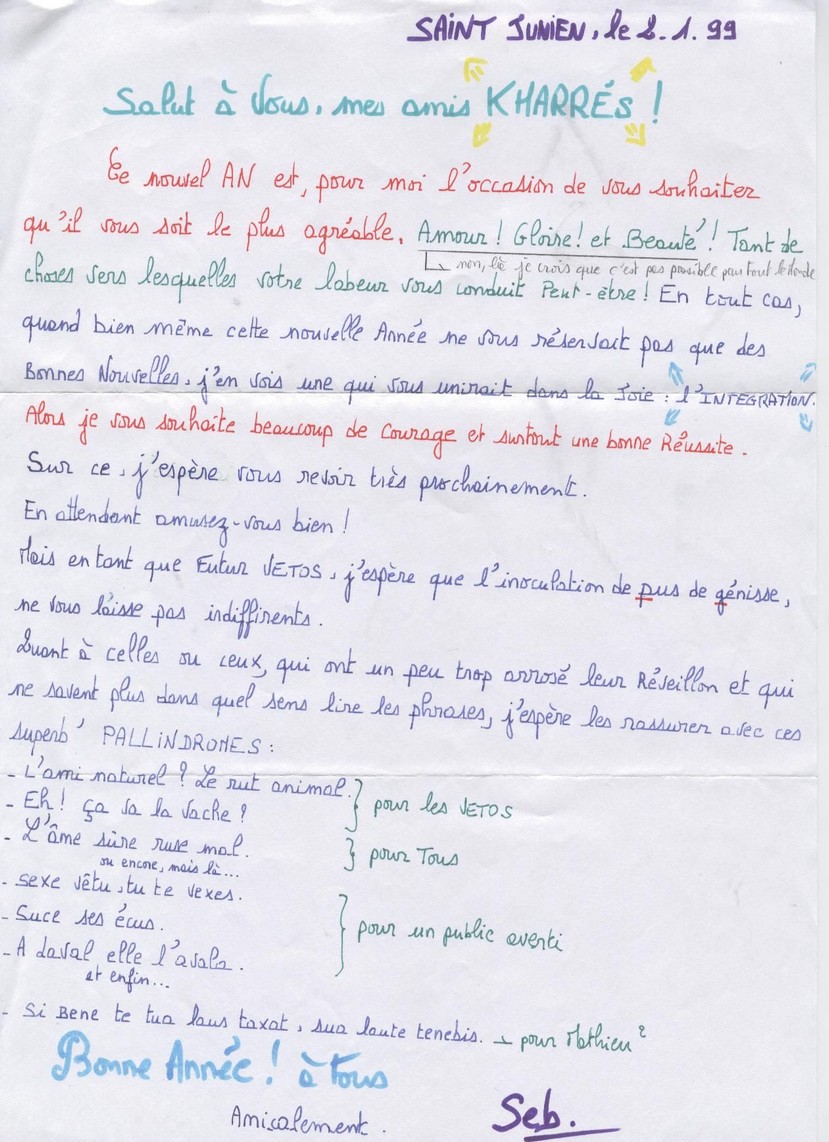 SAINT JUNIEN, le 2.1.99
Salut à Vous, mes amis KHARRÉS !
Ce nouvel AN est, pour moi l'occasion de vous souhaiter
qu'il vous soit le plus agréable. Amour ! Gloire ! et Beauté ! Tant de
non, là je crois que c'est pas possible pour tout le Monde
choses vers lesquelles votre labeur vous conduit Peut-être ! En tout cas,
quand bien même cette nouvelle Année ne vous réservait pas que des
Bonnes Nouvelles, j'en vois une qui vous unirait dans la Joie : l'INTEGRATION.
Alors je vous souhaite beaucoup de Courage et surtout une bonne Réussite.
Sur ce, j'espère vous revoir très prochainement.
En attendant amusez-vous bien !
Mais en tant que Futur VETOS, j'espère que l'inoculation de pus de génisse,
ne vous laisse pas indiffirents.
Quant à celles ou ceux, qui ont un peu trop arrosé leur Réveillon et qui
ne savent plus dans quel sens lire les phrases, j'espère les rassurer avec ces
superb' PALLINDROMES :
- L'ami naturel ? Le rut animal.
- Eh ! ça va la vache ? } pour les VETOS
- L'âme sûre ruse mal. } pour Tous
ou encore, mais là...
- sexe vêtu, tu te vexes.
- Suce ses écus. } pour un public averti
- A Laval elle l'avala.
et enfin...
- Si Bene te tua laus taxat, sua laute tenebis. pour Mathieu 2
Bonne Année ! à Tous
Amicalement.
Seb.